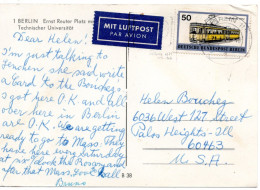 1 BERLIN Ernst Reuter Platz
Technischer Universität
MIT LUFTPOST
PAR AVION
50
DEUTSCHE BUNDESPOST BERLIN
Dear Helen,
I'm just talking to
she said write
a card to the
I got here O.K. and all
over here in Berlin
are O.K. We are getting
ready to go to Mass. They
have here every Saturday
at six o'clock the Rosary and
for that Mass.
Bruno
B 38
Helen
6036 West 127 Street
Palos Heights - Ill
60463
U.S.A.